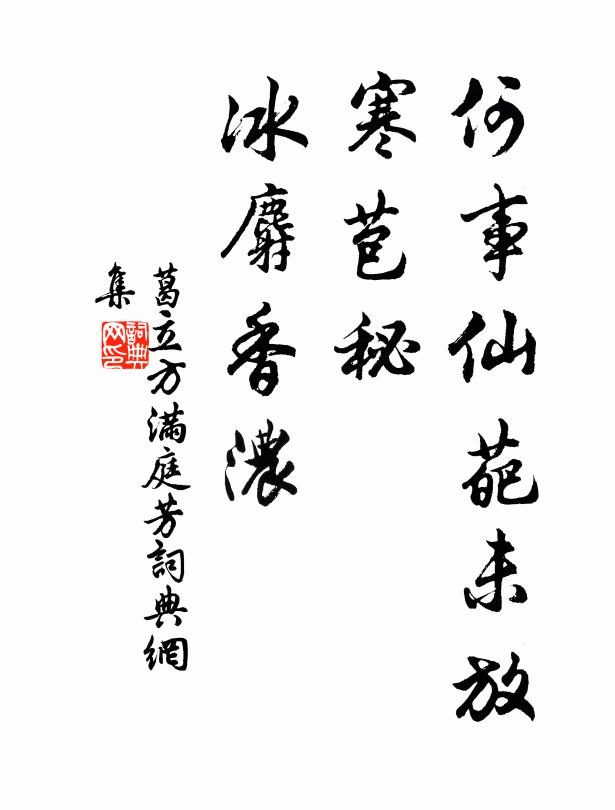 何事仙葩未放
寒苞秘
冰麝香濃
葛立方滿庭芳詞典網
集
詞典網印